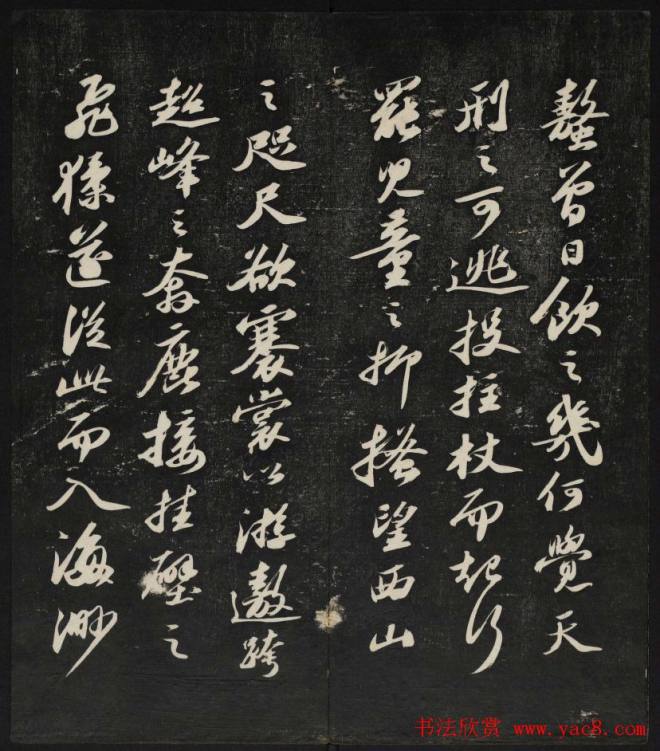 螯曾日飲之幾何覺天
刑之可逃投拄杖而起行
罷兒童之抑搔望西山
之咫尺欲褰裳以游遨跨
超峰之奔鹿接挂壁之
飛猱遂從此而入海渺
书法欣赏 www.yac8.com